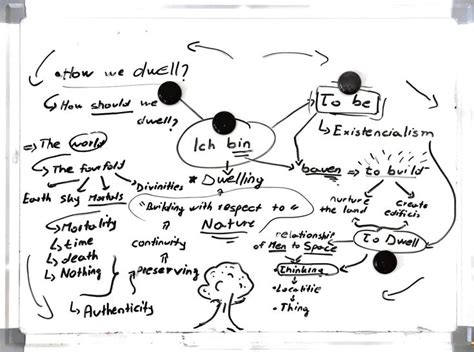 How we dwell?
How should we
dwell?
Ich bin
To be
Existencialism
bauen => to build
nurture
the land
create
edificis
To Dwell
relationship
of Men to Space
Thinking
• Localitie
• Thing
* Dwelling
"Building with respect to "
Nature
=> The world
The fourfold
Earth sky Mortals
Divinities
Mortality
time
death
Nothing
Authenticity
continuity
preserving